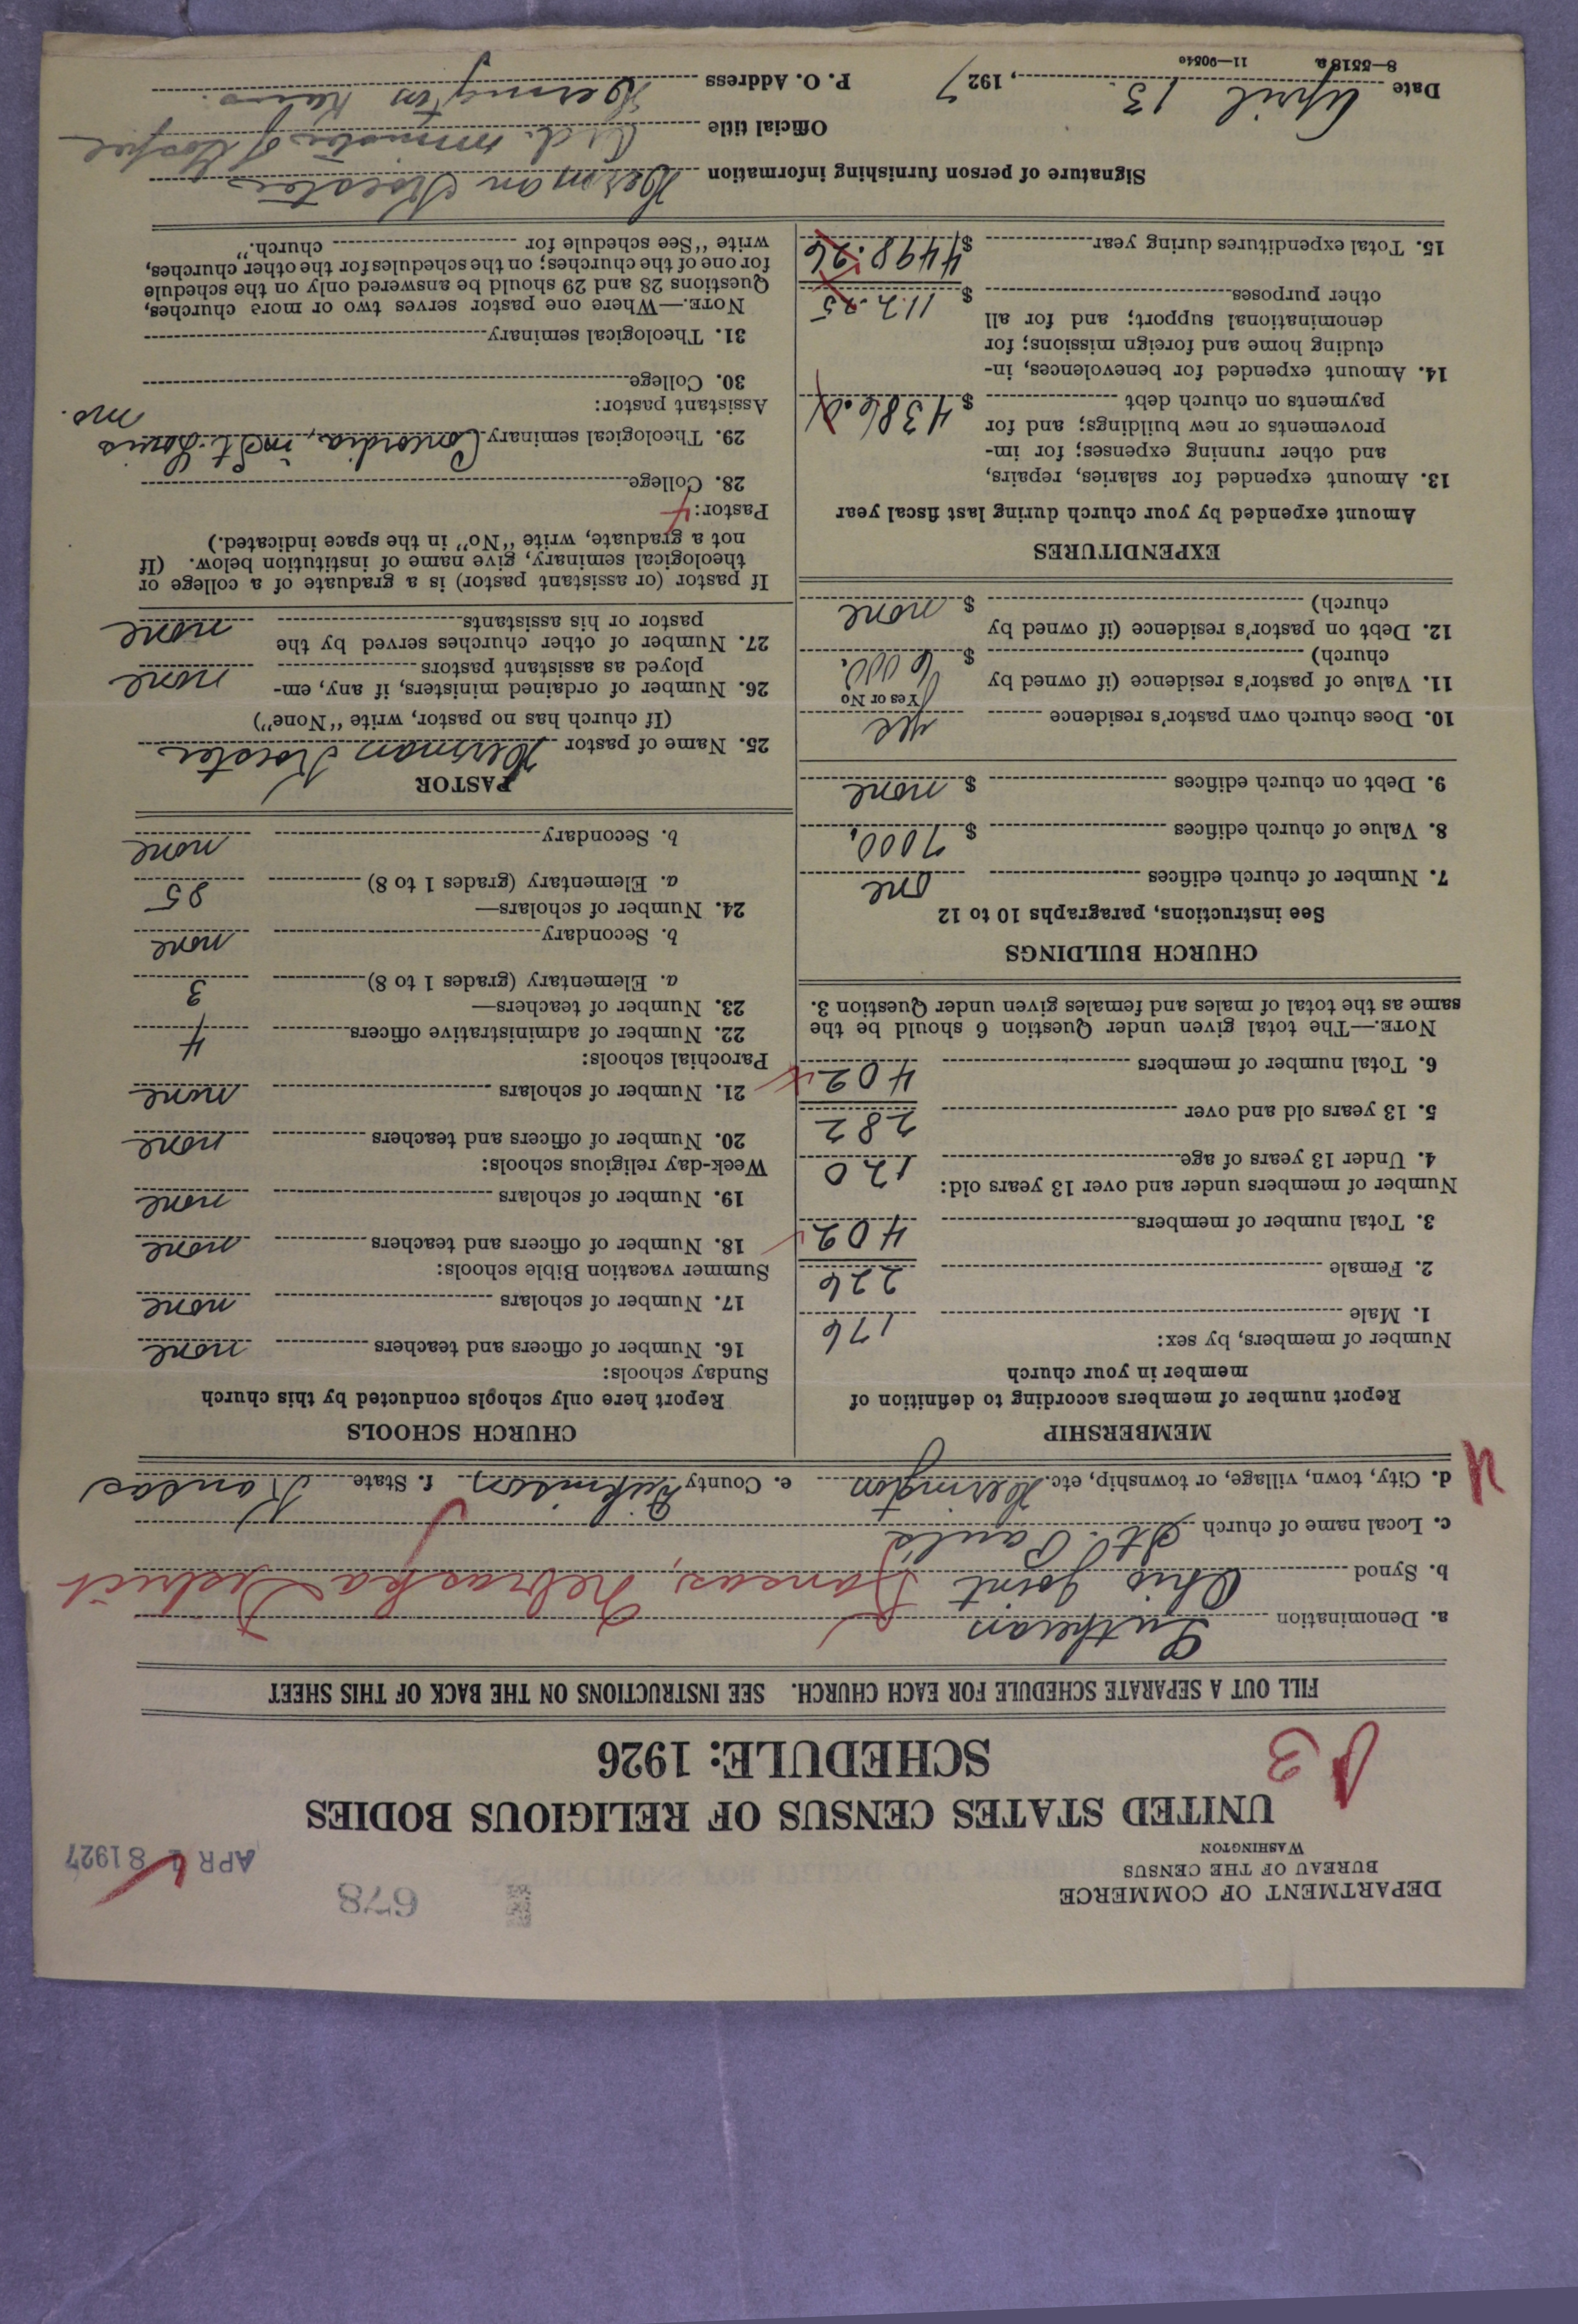 DEPARTMENT OF COMMERCE
BUREAU OF THE CENSUS
WASHINGTON
678
APR 8 1927
UNITED STATES CENSUS OF RELIGIOUS BODIES
SCHEDULE: 1926
FILL OUT A SEPARATE SCHEDULE FOR EACH CHURCH. SEE INSTRUCTIONS ON THE BACK OF THIS SHEET
a. Denomination Lutheran
b. Synod Ohio Joint Kansas, Nebraska District
c. Local name of church St. Paul's
d. City, town, village, or township, etc. Herington e. County Dickinson f. State Kansas
MEMBERSHIP
Report number of members according to definition of
member in your church
Number of members, by sex:
1. Male 176
2. Female 226
3. Total number of members 402
Number of members under and over 13 years old:
4. Under 13 years of age 120
5. 13 years old and over 282
6. Total number of members 402
NOTE.—The total given under Question 6 should be the
same as the total of males and females given under Question 3.
CHURCH BUILDINGS
See instructions, paragraphs 10 to 12
7. Number of church edifices one
8. Value of church edifices $ 7000.
9. Debt on church edifices $ none
10. Does church own pastor's residence yes
Yes or No
11. Value of pastor's residence (if owned by
church) $ 6000.
12. Debt on pastor's residence (if owned by
church) $ none
EXPENDITURES
Amount expended by your church during last fiscal year
13. Amount expended for salaries, repairs,
and other running expenses; for im-
provements or new buildings; and for
payments on church debt $
14. Amount expended for benevolences, in-
cluding home and foreign missions; for
denominational support; and for all
other purposes $ 112.25
15. Total expenditures during year $ 4498.26
CHURCH SCHOOLS
Report here only schools conducted by this church
Sunday schools:
16. Number of officers and teachers none
17. Number of scholars none
Summer vacation Bible schools:
18. Number of officers and teachers none
19. Number of scholars none
Week-day religious schools:
20. Number of officers and teachers none
21. Number of scholars none
Parochial schools:
22. Number of administrative officers 4
23. Number of teachers—
a. Elementary (grades 1 to 8)
b. Secondary none
24. Number of scholars—
a. Elementary (grades 1 to 8)
b. Secondary none
PASTOR
25. Name of pastor Herman
(If church has no pastor, write "None")
26. Number of ordained ministers, if any, em-
ployed as assistant pastors none
27. Number of other churches served by the
pastor or his assistants none
If pastor (or assistant pastor) is a graduate of a college or
theological seminary, give name of institution below. (If
not a graduate, write "No" in the space indicated.)
Pastor:
28. College
29. Theological seminary Concordia, in St. Louis
Mo.
Assistant pastor:
30. College
31. Theological seminary
NOTE.—Where one pastor serves two or more churches,
Questions 28 and 29 should be answered only on the schedule
for one of the churches; on the schedules for the other churches,
write "See schedule for church."
Signature of person furnishing information Herman
Official title minister of Gospel
Date April 13, 1927 P. O. Address Herington Kans.
8—5518a 11—9054c